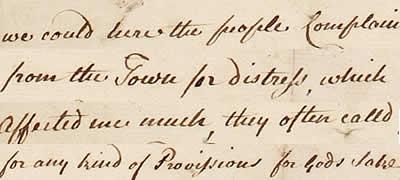 we could here the people Complain
from the Town for distress, which
affected me much, they often called
for any kind of Provissions for Gods Sake